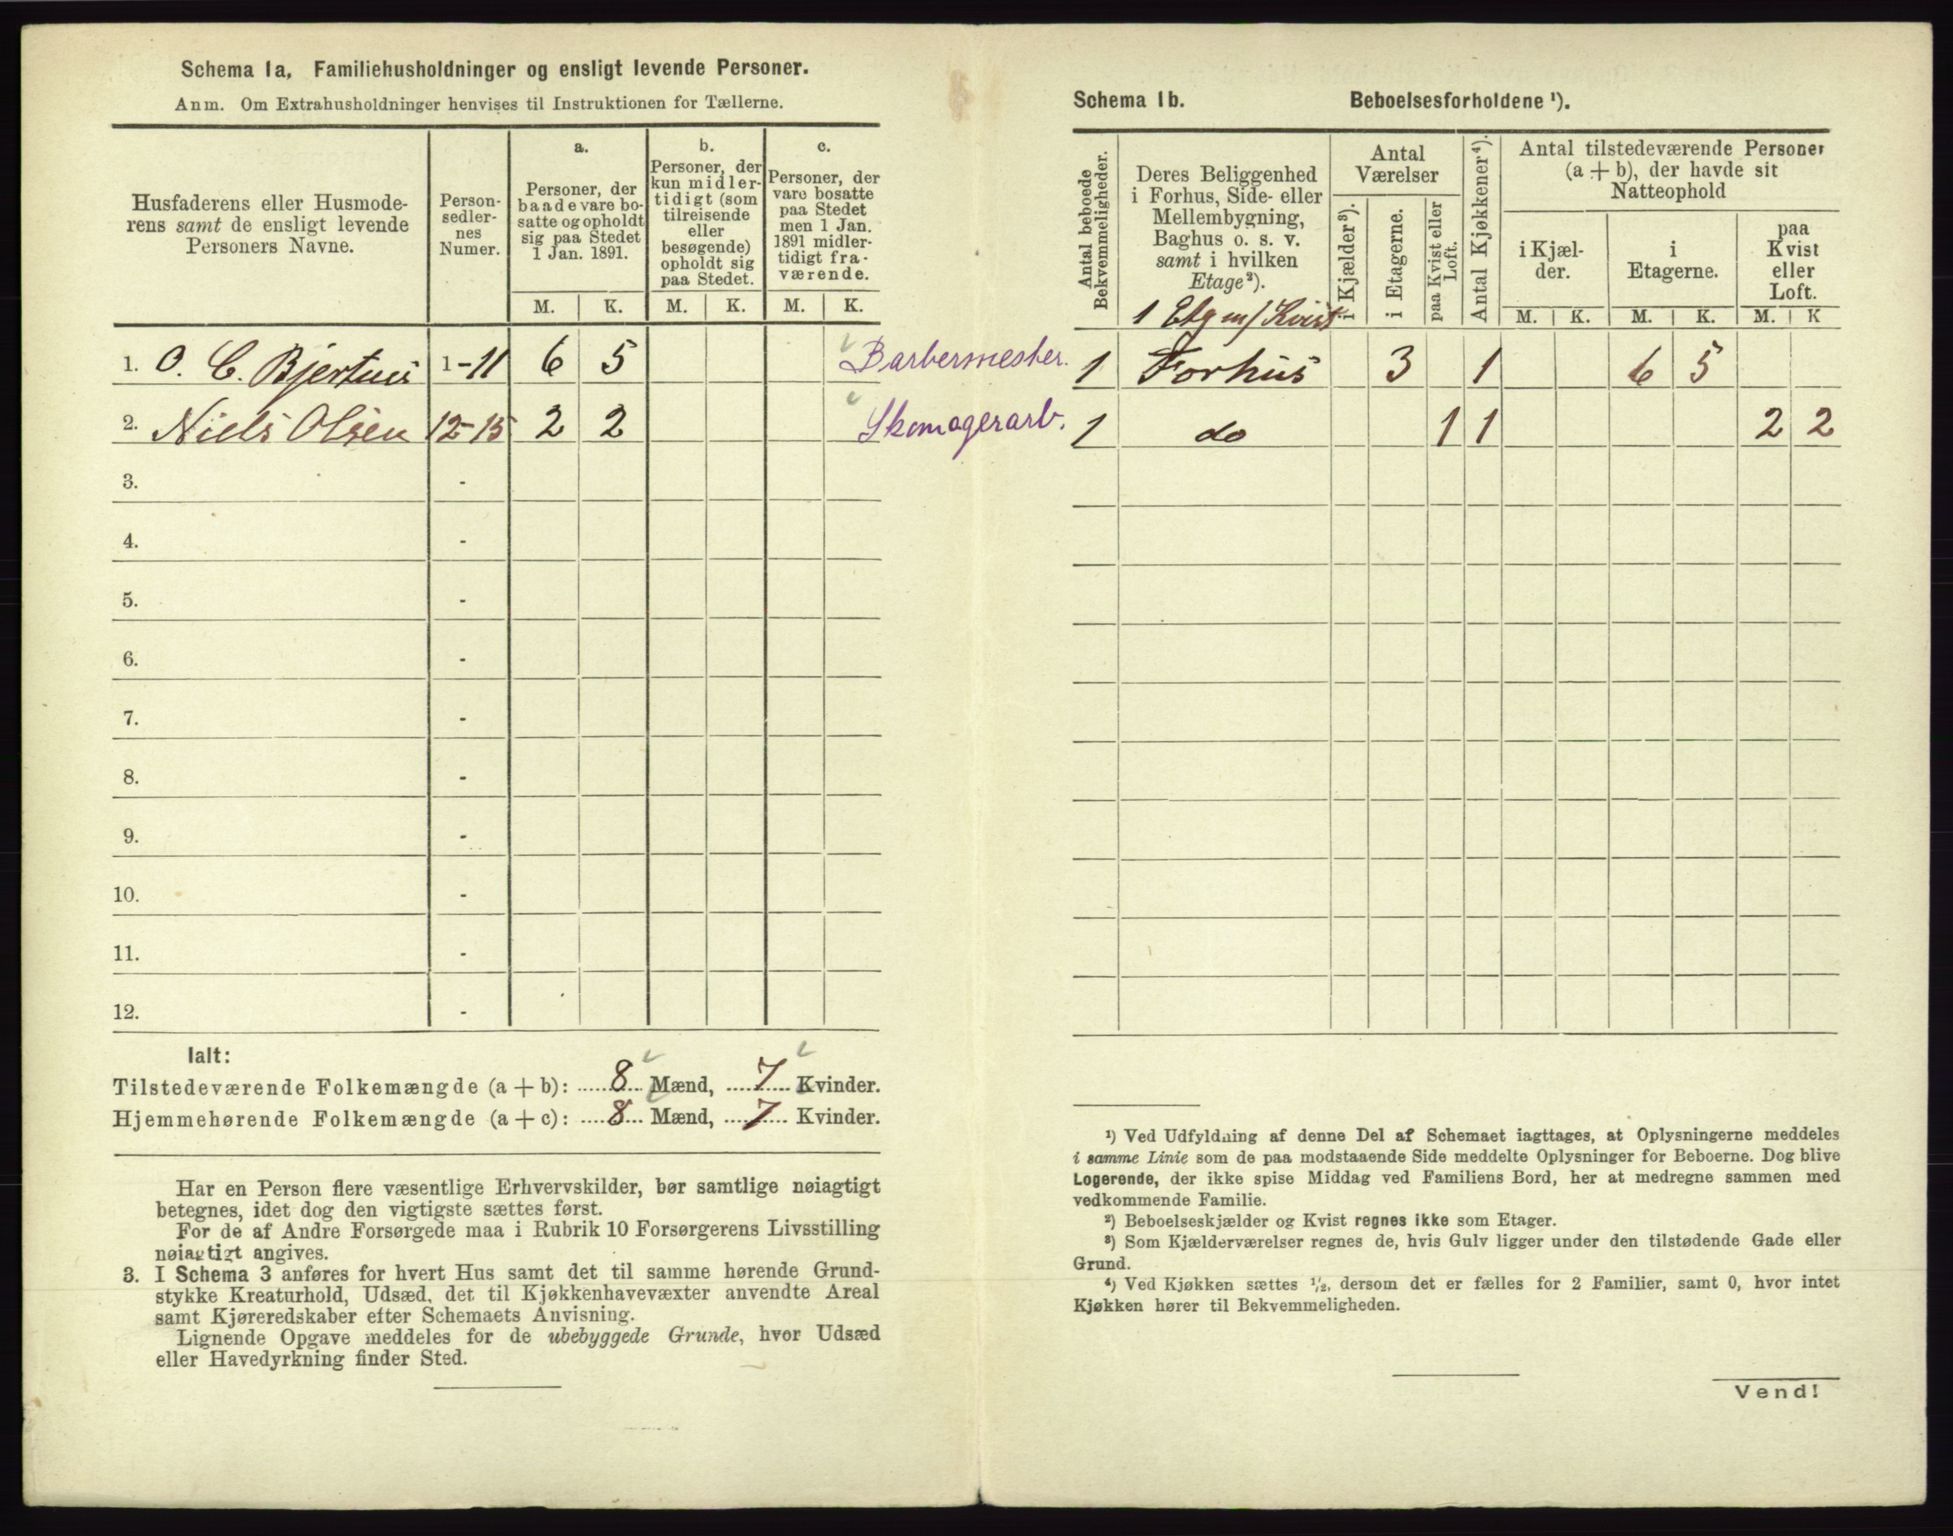 Schema 1a. Familiehusholdninger og ensligt levende Personer.
Anm. Om Extrahusholdninger henvises til Instruktionen for Tællerne.
Husfaderens eller Husmode-
rens samt de ensligt levende
Personers Navne.
Person-
sedler-
nes
Numer.
a.
Personer, der
baade vare bo-
satte og opholdt
sig paa Stedet
1 Jan. 1891.
b.
Personer, der
kun midler-
tidigt (som
tilreisende
eller
besøgende)
opholdt sig
paa Stedet.
c.
Personer, der
vare bosatte
paa Stedet
men 1 Jan.
1891 midler-
tidigt fra-
værende.
M. K. M. K. M. K.
1. O. C. Bjertnes 1-11 6 5 Barbermester.
2. Niels Olsen 12-15 2 2 Skomagerarb.
3. -
4. -
5. -
6. -
7. -
8. -
9. -
10. -
11. -
12. -
Ialt:
Tilstedeværende Folkemængde (a + b): ..... 8 ... Mænd, .... 7 .... Kvinder.
Hjemmehørende Folkemængde (a + c): .... 8 ... Mænd, .... 7 .... Kvinder.
Har en Person flere væsentlige Erhvervskilder, bør samtlige nøiagtigt
betegnes, idet dog den vigtigste sættes først.
For de af Andre Forsørgede maa i Rubrik 10 Forsørgerens Livsstilling
nøiagtigt angives.
3. I Schema 3 anføres for hvert Hus samt det til samme hørende Grund-
stykke Kreaturhold, Udsæd, det til Kjøkkenhavevæxter anvendte Areal
samt Kjøreredskaber efter Schemaets Anvisning.
Lignende Opgave meddeles for de ubebyggede Grunde, hvor Udsæd
eller Havedyrkning finder Sted.
Schema 1b. Beboelsesforholdene ¹).
Antal beboede
Bekvemmeligheder.
Deres Beliggenhed
i Forhus, Side- eller
Mellembygning,
Baghus o. s. v.
samt i hvilken
Etage²).
Antal
Værelser
i Kjælder³).
i Etagerne.
paa Kvist eller
Loft.
Antal Kjøkkener⁴).
Antal tilstedeværende Personer
(a + b), der havde sit
Natteophold
i Kjæl-
der.
i
Etagerne.
paa
Kvist
eller
Loft.
M. K. M. K. M. K
1 Etg m/ Kvist
1 Forhus 3 1 6 5
1 do 1 1 2 2
¹) Ved Udfyldning af denne Del af Schemaet iagttages, at Oplysningerne meddeles
i samme Linie som de paa modstaaende Side meddelte Oplysninger for Beboerne. Dog blive
Logerende, der ikke spise Middag ved Familiens Bord, her at medregne sammen med
vedkommende Familie.
²) Beboelseskjælder og Kvist regnes ikke som Etager.
³) Som Kjælderværelser regnes de, hvis Gulv ligger under den tilstødende Gade eller
Grund.
⁴) Ved Kjøkken sættes ½, dersom det er fælles for 2 Familier, samt 0, hvor intet
Kjøkken hører til Bekvemmeligheden.
Vend!